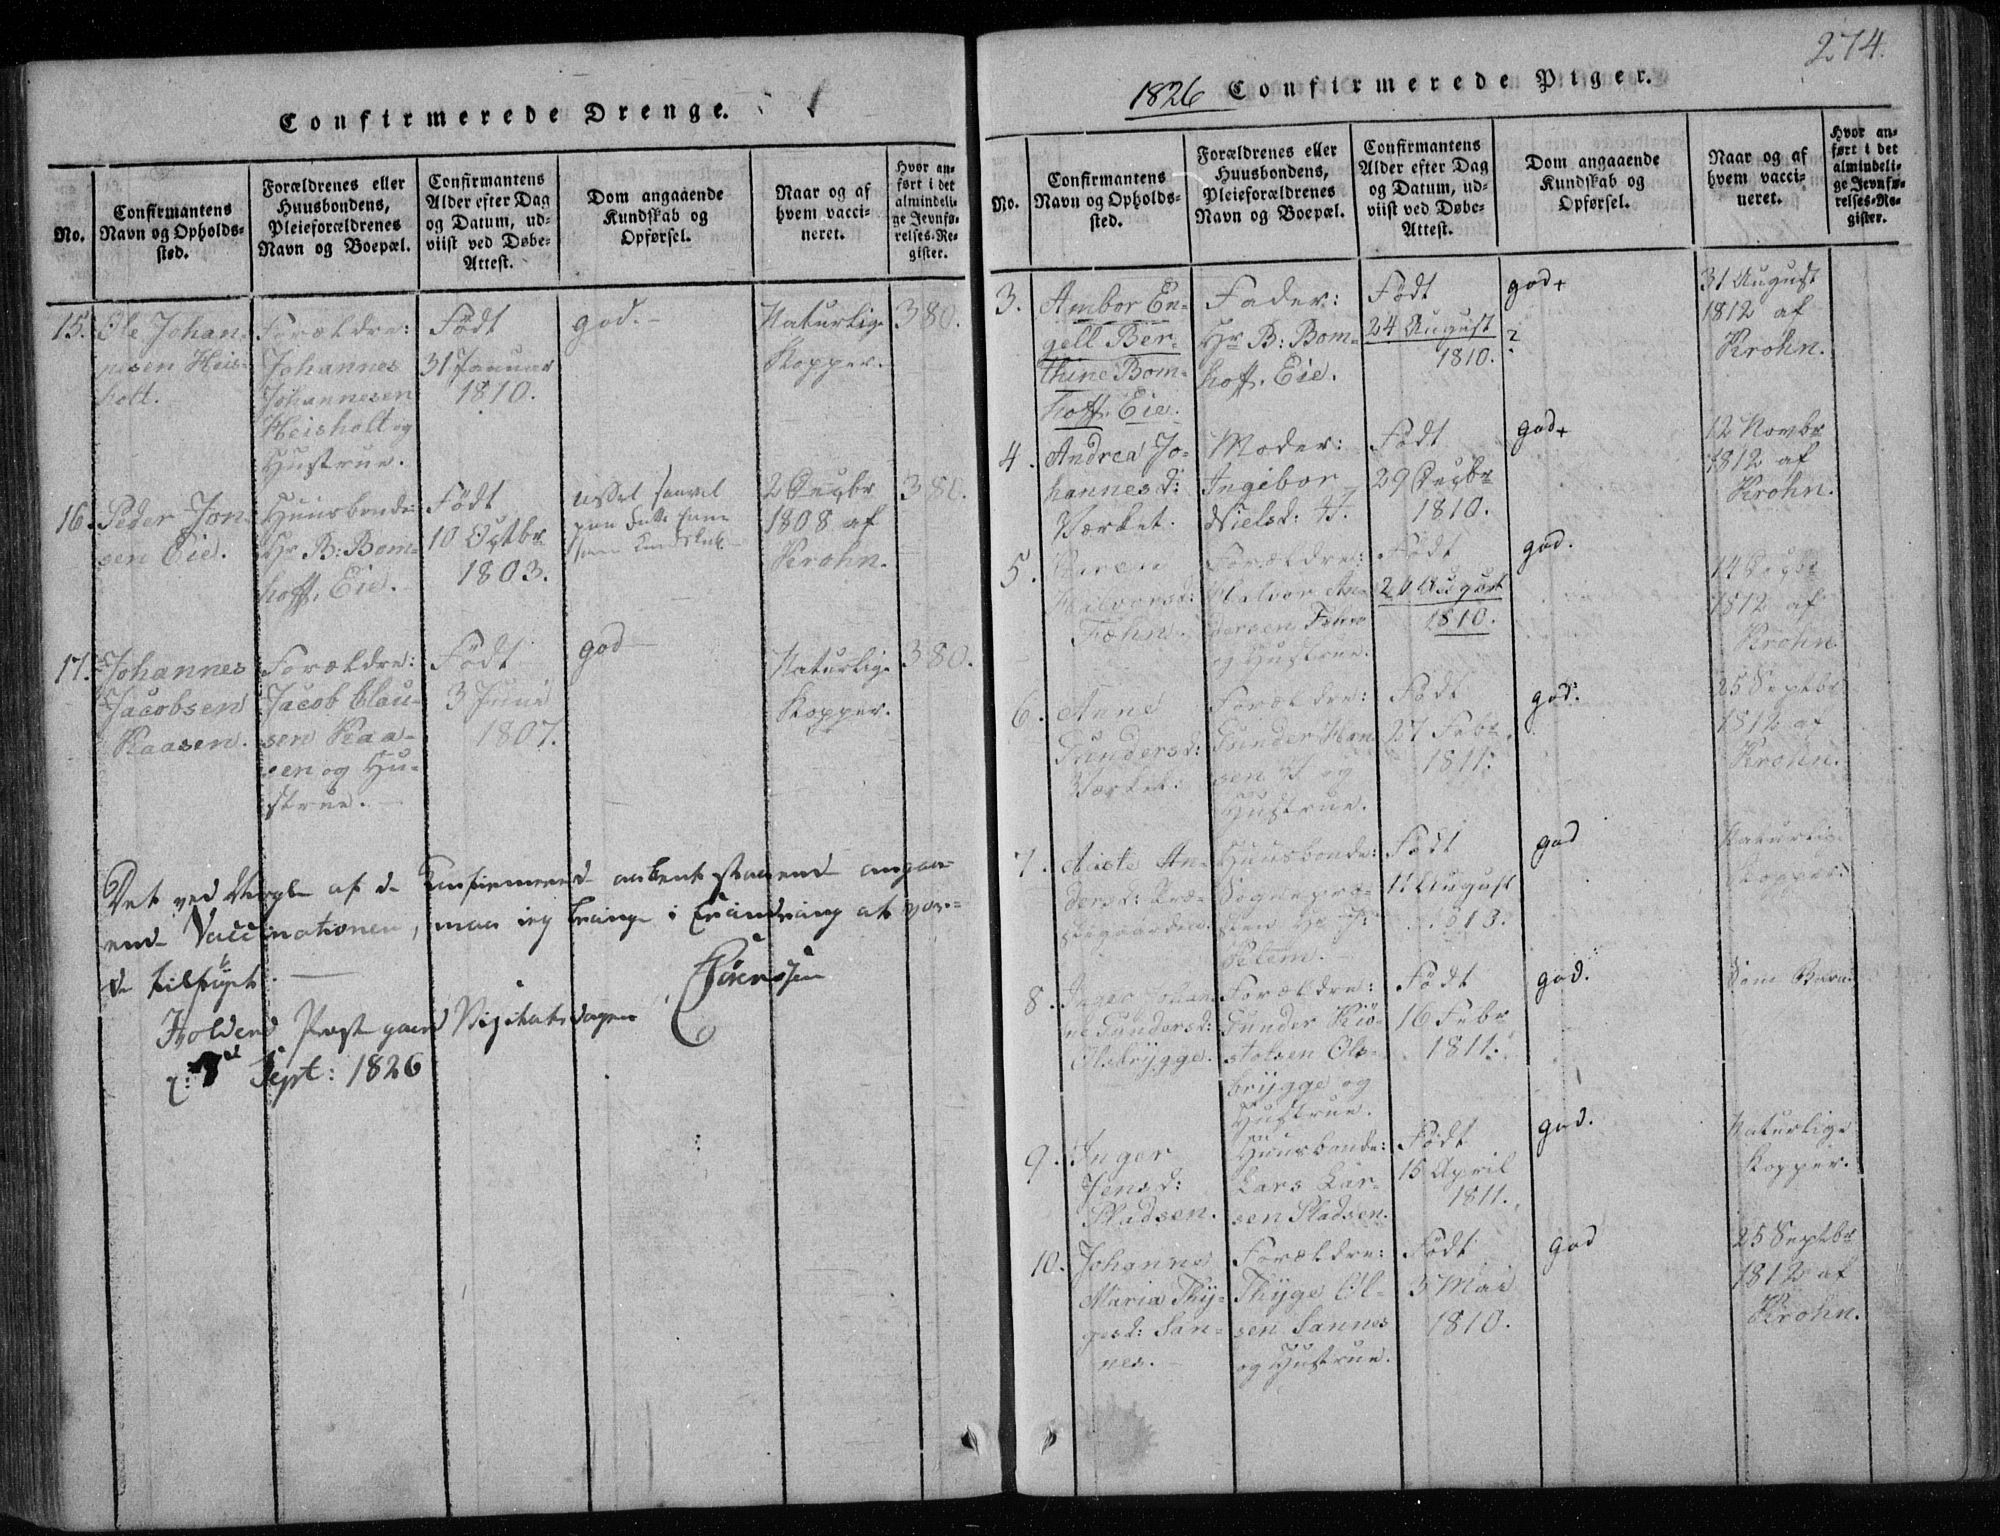 Confirmerede Drenge.
No.
Confirmantens
Navn og Opholds-
sted.
Forældrenes eller
Huusbondens,
Pleieforældrenes
Navn og Boepæl.
Confirmantens
Alder efter Dag
og Datum, ud-
viist ved Døbe-
Attest.
Dom angaaende
Kundskab og
Opførsel.
Naar og af
hvem vacci-
neret.
Hvor an-
ført i det
almindeli-
ge Jevnfø-
relses-Re-
gister.
15.
Ole Johan-
nesen Heis-
holt.
Forældre:
Johannes
Johannesen
Heisholt og
Hustrue.
Født
31 Januar
1810.
god.
Naturlige
Kopper.
380.
16.
Peder Jon-
sen Eie.
Huusbonde:
Hr B: Bom-
hoff, Eie.
Født
10 Octbr
1803.
ussel saavel
som Kundskab
2 Decbr
1808 af
Krohn.
380.
17.
Johannes
Jacobsen
Kaasen.
Forældre:
Jacob Clau-
sen Kaa-
sen og Hu-
strue.
Født
3 Junii
1807.
god
Naturlige
Kopper.
380.
Det ved af de angaa-
ende Vaccinationen, maa jeg bringe i Erindring at vor-
de tilføyet.
Holdens Præstegaard Visitatsdagen
Sept: 1826
Sørenssen
274.
1826 Confirmerede Piger.
No.
Confirmantens
Navn og Opholds-
sted.
Forældrenes eller
Huusbondens,
Pleieforældrenes
Navn og Boepæl.
Confirmantens
Alder efter Dag
og Datum, ud-
viist ved Døbe-
Attest.
Dom angaaende
Kundskab og
Opførsel.
Naar og af
hvem vacci-
neret.
Hvor an-
ført i det
almindeli-
ge Jevnfø-
relses-Re-
gister.
3.
Ambor En-
gell Ber-
thine Bom-
hoff, Eie.
Fader:
Hr B: Bom-
hoff, Eie.
Født
24 August
1810.
god+
?
31 August
1812 af
Krohn.
4.
Andrea Jo-
hannesd:
Værket.
Moder:
Ingebor
Nielsd:
Født
29 Decbr
1810.
god+
12 Novbr
1812 af
Krohn.
5.
Halvorsd:
Fæhn.
Forældre:
Halvor An-
dersen Fæhn
og Hustrue.
Født
21 August
1810.
god.
12 Decbr
1812 af
Krohn
6.
Anne
Gundersd:
Værket.
Forældre:
Gunder Han-
sen og
Hustrue.
Født
27 Febr
1811.
god.
25 Septbr
1812 af
Krohn.
7.
An-
dersd: Præ-
stegaarden.
Huusbonde:
Sognepræ-
sten Hr
Født
11 August
god
Naturlige
Kopper.
8.
Inger Johan-
ne Gundersd:
Olsbrygge.
Forældre:
Gunder Kio-
stolsen Ols-
brygge og
Hustrue.
Født
16 Febr
1811.
god.
Som Barn
9.
Inger
Jensd:
Pladsen.
Huusbonde:
Lars Lar-
sen Pladsen.
Født
15 April
1811.
god.
Naturlige
Kopper.
10.
Johanne
Maria Thy-
gesd: San-
nes.
Forældre:
Thyge Ol-
sen Sannes
og Hustrue.
Født
3 Mai
1810.
god
25 Septbr
1812 af
Krohn.